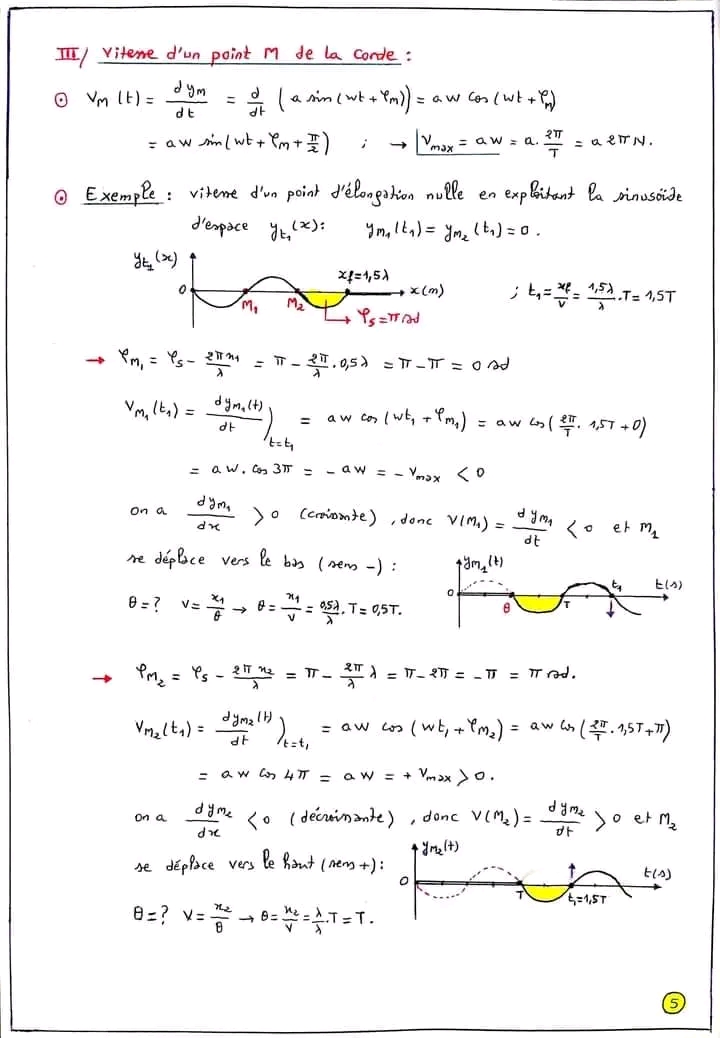 III/ Vitesse d'un point M de la corde :
⊙ V_M (t) = dy_M/dt = d/dt (a sin(wt + φ_M)) = a w cos(wt + φ_M)
= a w sin(wt + φ_M + π/2) ; → V_max = a w = a. 2π/T = a 2π N.
⊙ Exemple : vitesse d'un point d'élongation nulle en exploitant la sinusoïde
d'espace y_t₁(x): y_M₁(t₁) = y_M₂(t₁) = 0.
y_t₁(x)
xf=1,5λ
0 M₁ M₂ x(m) ; t₁ = xf/V = 1,5λ/λ .T = 1,5T
φ_S = π rad
→ φ_M₁ = φ_S - 2πx₁/λ = π - 2π/λ . 0,5λ = π - π = 0 rad
V_M₁(t₁) = dy_M₁(t)/dt )_t=t₁ = a w cos(wt₁ + φ_M₁) = a w cos(2π/T . 1,5T + 0)
= a w. cos 3π = - a w = - V_max < 0
on a dy_M₁/dx > 0 (croissante), donc V(M₁) = dy_M₁/dt < 0 et M₁
se déplace vers le bas (sens -) :
y_M₁(t)
0 θ T t₁ t(s)
θ = ? V = x₁/θ → θ = x₁/V = 0,5λ/λ . T = 0,5T.
→ φ_M₂ = φ_S - 2π x₂/λ = π - 2π/λ λ = π - 2π = -π = π rad.
V_M₂(t₁) = dy_M₂(t)/dt )_t=t₁ = aw cos (wt₁ + φ_M₂) = aw cos (2π/T . 1,5T + π)
= a w cos 4π = a w = + V_max > 0.
on a dy_M₂/dx < 0 (décroissante), donc V(M₂) = dy_M₂/dt > 0 et M₂
se déplace vers le haut (sens +) :
y_M₂(t)
0 T t₁=1,5T t(s)
θ = ? V = x₂/θ → θ = x₂/V = λ/λ . T = T.
5